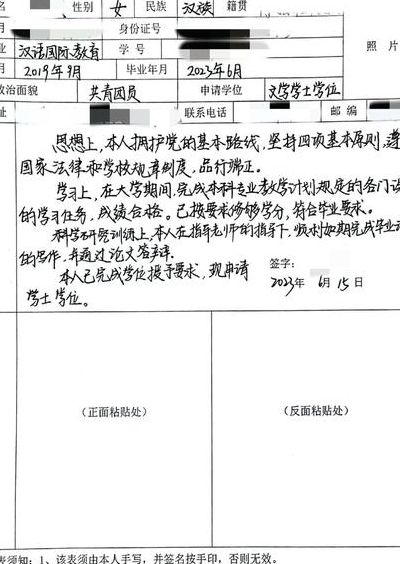 名 性别 女 民族 汉族 籍贯
月 身份证号
业 汉语国际教育 学号 照片
月 2019年9月 毕业年月 2023年6月
政治面貌 共青团员 申请学位 文学学士学位
址 联系电话 邮编
思想上，本人拥护党的基本路线，坚持四项基本原则，遵
国家法律和学校规章制度，品行端正。
学习上，在大学期间，完成本科专业教学计划规定的各门课
的学习任务，成绩合格。已按要求修够学分，符合毕业要求。
科学研究训练上，本人在指导老师的指导下，顺利如期完成毕业论
的写作，并通过论文答辩。
本人已完成学位授予要求，现申请
学士学位。
签字：
2023年 6月15日
（正面粘贴处） （反面粘贴处）
表须知：1、该表须由本人手写，并签名按手印，否则无效。